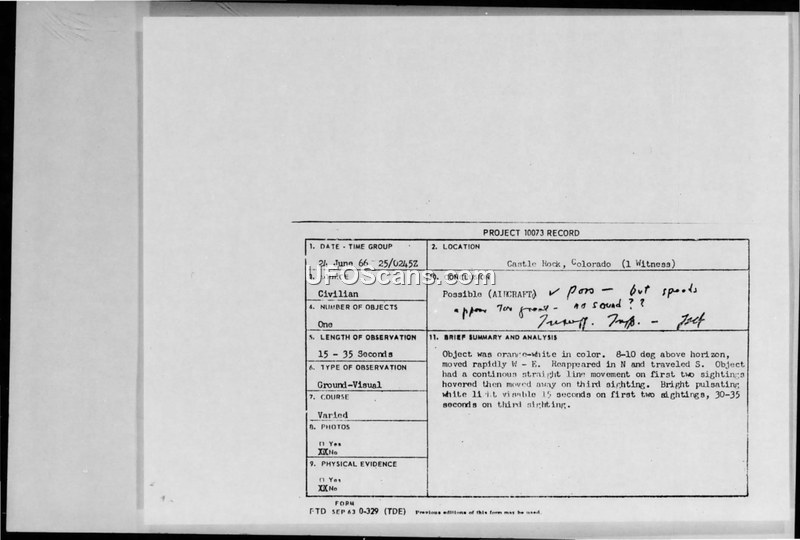 PROJECT 10073 RECORD
1. DATE - TIME GROUP
24 June 66 25/0245Z
2. LOCATION
Castle Rock, Colorado (1 Witness)
3. SOURCE
Civilian
10. CONCLUSION
Possible (AIRCRAFT) ✓ Poss — but speeds
appear too great - no sound??
4. NUMBER OF OBJECTS
One
5. LENGTH OF OBSERVATION
15 - 35 Seconds
6. TYPE OF OBSERVATION
Ground-Visual
7. COURSE
Varied
8. PHOTOS
□ Yes
XX No
9. PHYSICAL EVIDENCE
□ Yes
XX No
11. BRIEF SUMMARY AND ANALYSIS
Object was orange-white in color. 8-10 deg above horizon,
moved rapidly W - E. Reappeared in N and traveled S. Object
had a continous straight line movement on first two sightings
hovered then moved away on third sighting. Bright pulsating
white light visable 15 seconds on first two sightings, 30-35
seconds on third sighting.
FORM
FTD SEP 63 0-329 (TDE) Previous editions of this form may be used.
UFOScans.com